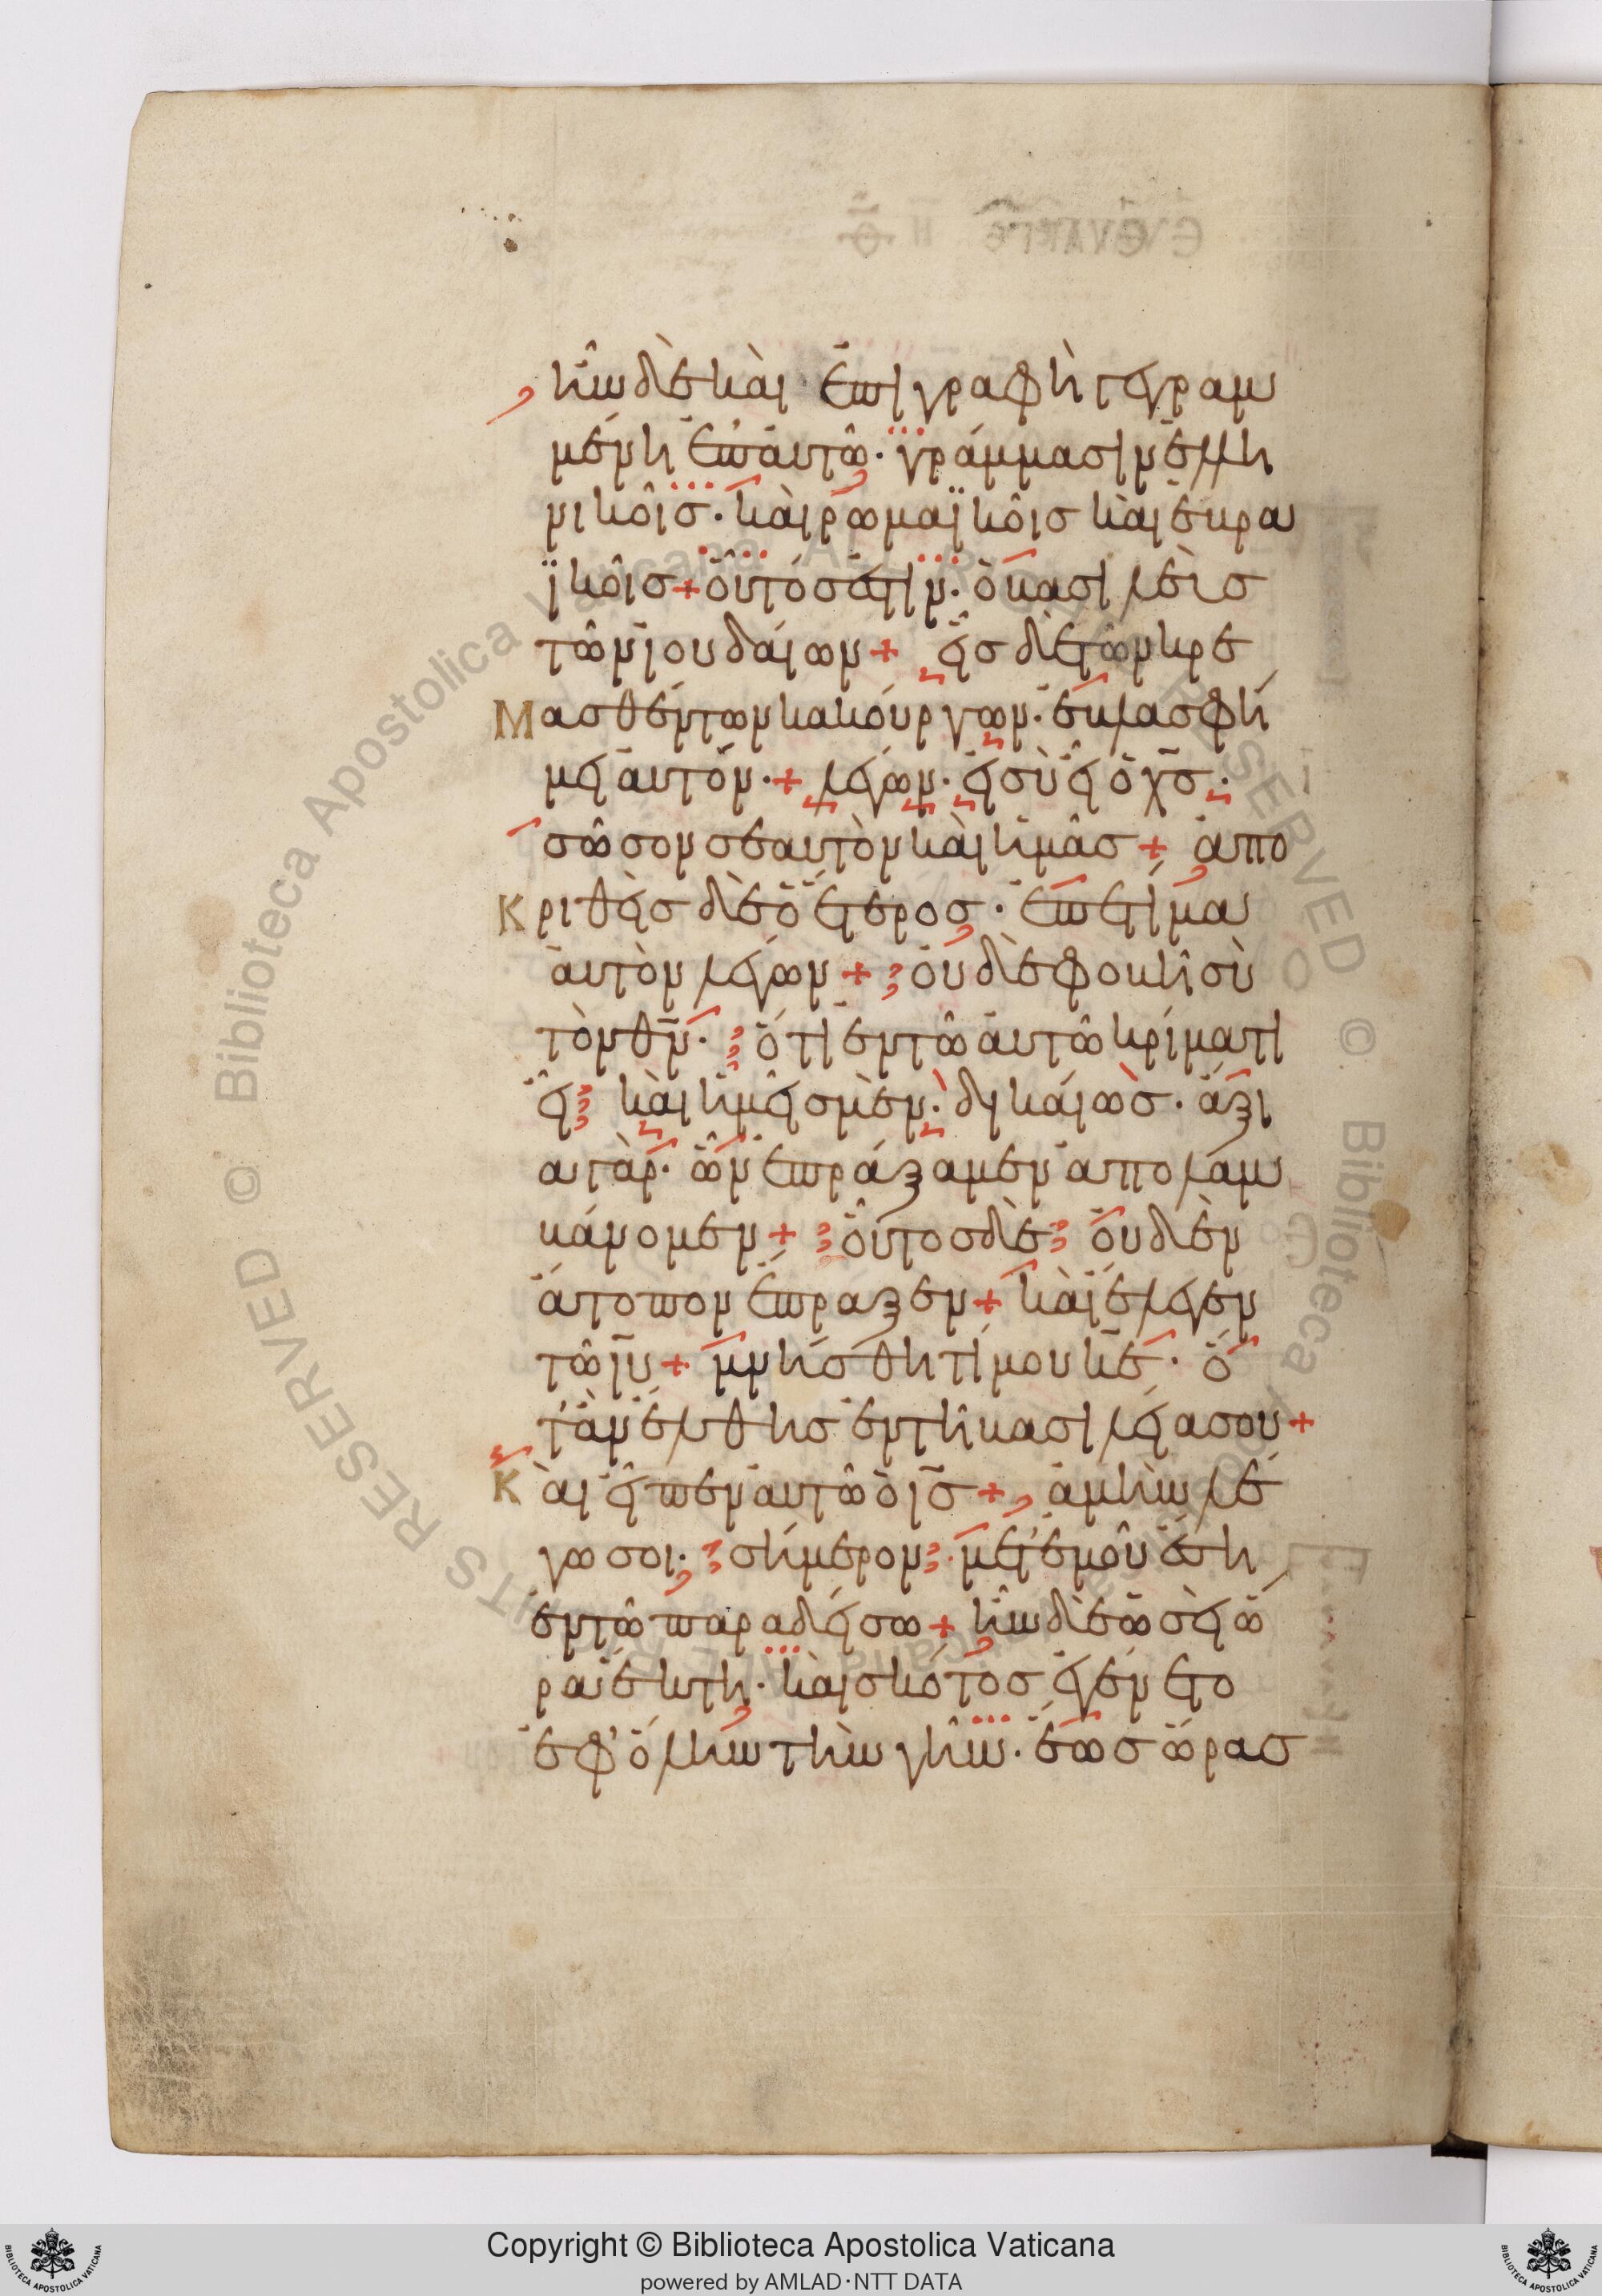 ἦν δὲ καὶ ἐπιγραφὴ γεγραμ
μένη ἐπ' αὐτῶ· γράμμασιν ἑλλη
νικοῖς· καὶ ῥωμαϊκοῖς καὶ ἑβρα
ϊκοῖς + οὗτός ἐστιν· ὁ βασιλεὺς
τῶν ἰουδαίων + εἷς δὲ τῶν κρε
Μασθέντων κακούργων· ἐβλασφή
μει αὐτόν· + λέγων· εἰ σὺ εἶ ὁ χς·
σῶσον σεαυτὸν καὶ ἡμᾶς + ἀπο
Κριθεὶς δὲ ὁ ἕτερος· ἐπετίμα
αὐτὸν λέγων + οὐδὲ φοβῆ σὺ
τὸν θν· ὅτι ἐν τῶ αὐτῶ κρίματι
εἶ καὶ ἡμεῖς μὲν· δικαίως· ἄξι
α γὰρ· ὧν ἐπράξαμεν ἀπολαμ
βάνομεν + οὗτος δὲ οὐδὲν
ἄτοπον ἔπραξεν + καὶ ἔλεγεν
τῶ ιυ + μνήσθητί μου κε· ὅ
τ' ἂν ἔλθης ἐν τῆ βασιλεία σου +
Καὶ εἶπεν αὐτῶ ὁ ις + ἀμὴν λέ
γω σοι· σήμερον· μετ' ἐμοῦ ἔση
ἐν τῶ παραδείσω + ἦν δὲ ὡσεὶ ὥ
ρα ἕκτη· καὶ σκότος ἐγένετο
ἐφ' ὅλην τὴν γῆν· ἕως ὥρας
Copyright © Biblioteca Apostolica Vaticana
powered by AMLAD·NTT DATA